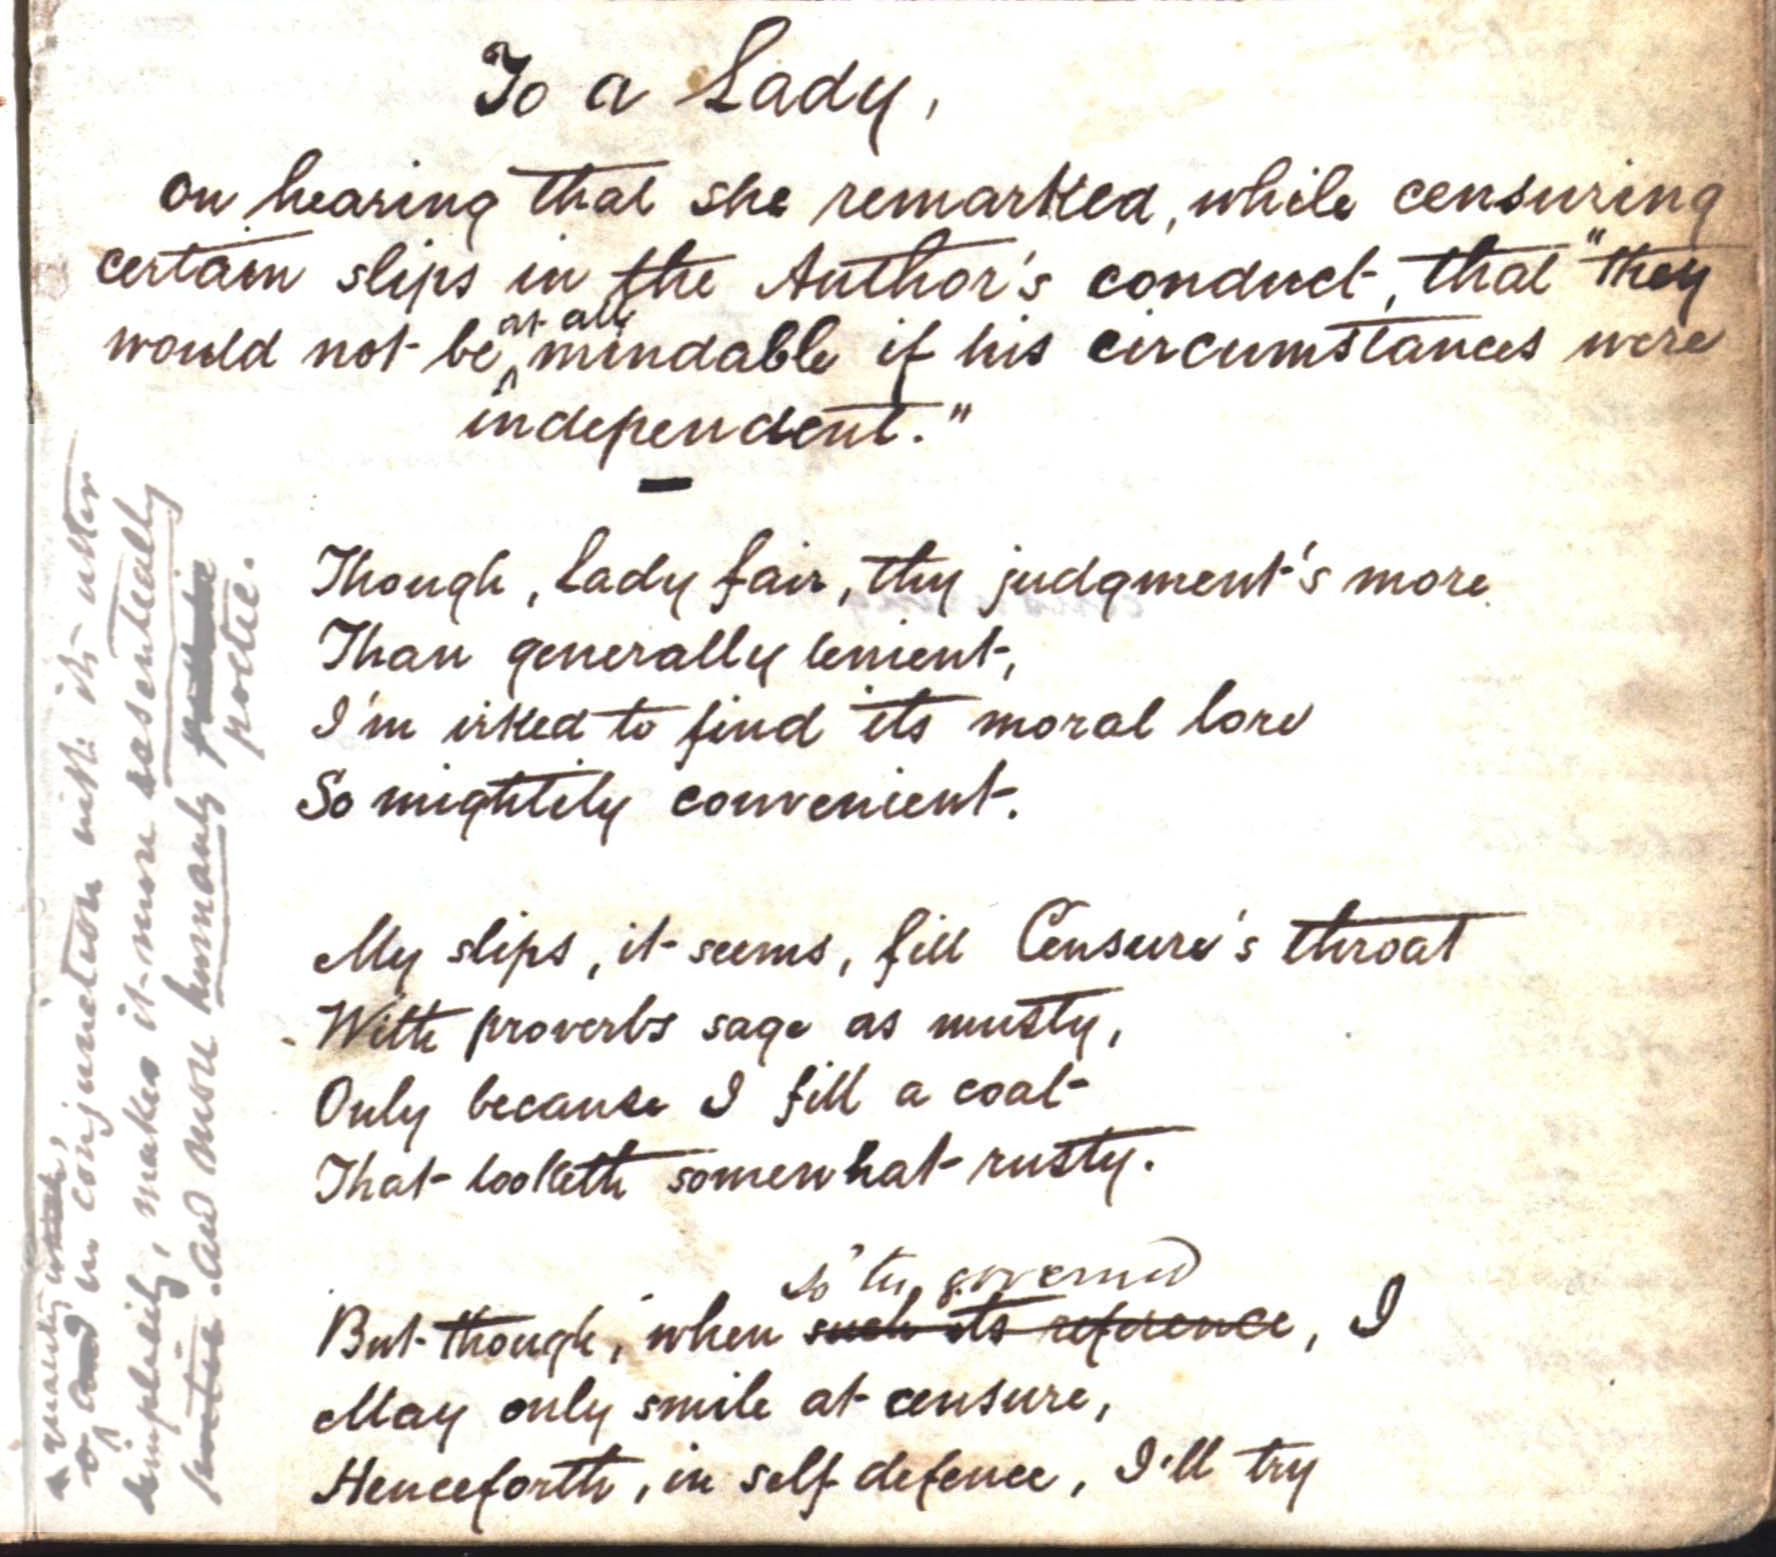 To a Lady,
on hearing that she remarked, while censuring
certain slips in the Author's conduct, that "they
would not be at all mindable if his circumstances were
independent."
Though, Lady fair, thy judgment's more
Than generally lenient,
I'm irked to find its moral lore
So mightily convenient.
My slips, it seems, fill Censure's throat
With proverbs sage as musty,
Only because I fill a coat
That looketh somewhat rusty.
so 'tis governed
But though, when such its reference, I
May only smile at censure,
Henceforth, in self defence, I'll try
a quality which,
in conjunction with its utter
simplicity, makes it more essentially
poetic and more humanly
poetic.